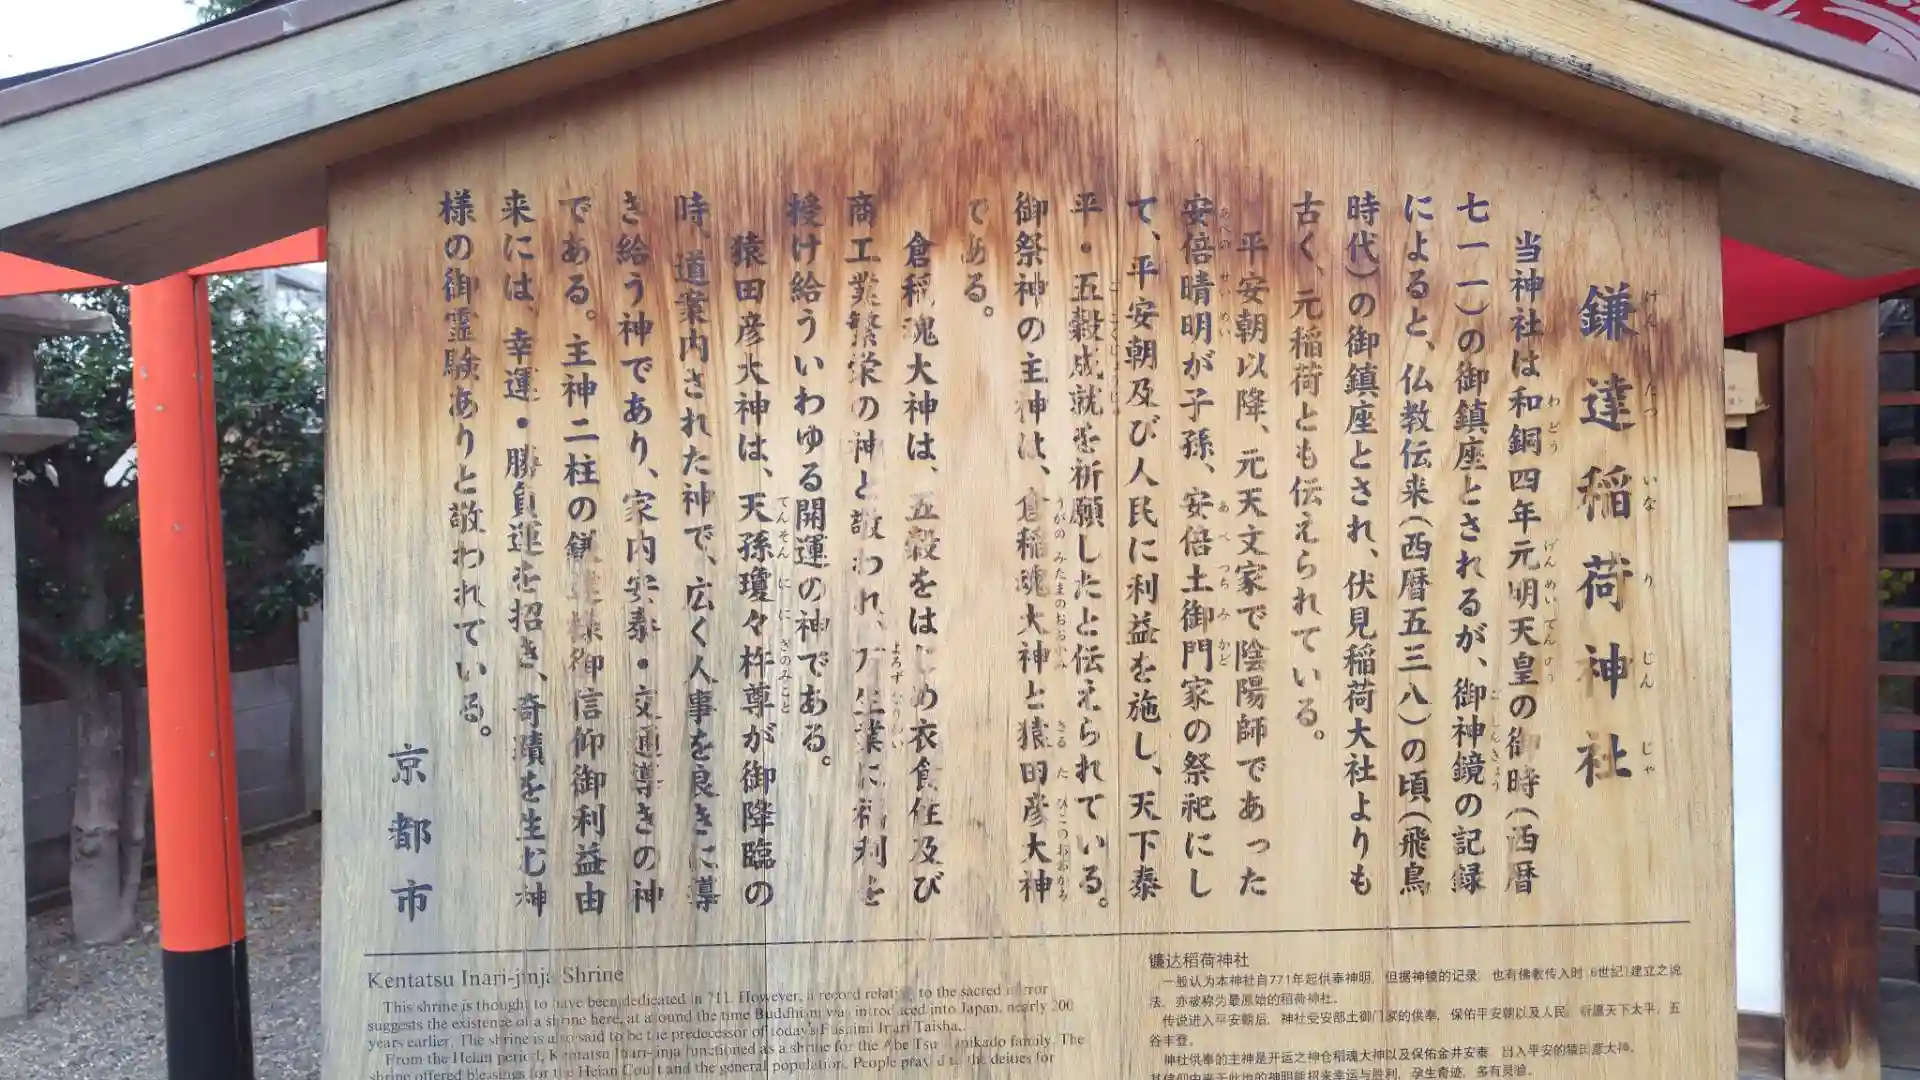 鎌達稲荷神社
けんたついなりじんじゃ
当神社は和銅四年元明天皇の御時(西暦
七一一)の御鎮座とされるが、御神鏡の記録
によると、仏教伝来(西暦五三八)の頃(飛鳥
時代)の御鎮座とされ、伏見稲荷大社よりも
古く、元稲荷とも伝えられている。
平安朝以降、元天文家で陰陽師であった
安倍晴明が子孫、安倍土御門家の祭祀にし
て、平安朝及び人民に利益を施し、天下泰
平・五穀成就を祈願したと伝えられている。
御祭神の主神は、倉稲魂大神と猿田彦大神
である。
倉稲魂大神は、五穀をはじめ衣食住及び
商工業繁栄の神と敬われ、万生業に福利を
授け給ういわゆる開運の神である。
猿田彦大神は、天孫瓊々杵尊が御降臨の
時、道案内された神で、広く人事を良きに導
き給う神であり、家内安泰・交通導きの神
である。主神二柱の鎌達様御信仰御利益由
来には、幸運・勝負運を招き、奇蹟を生む神
様の御霊験ありと敬われている。
京都市
Kentatsu Inari-jinja Shrine
This shrine is thought to have been dedicated in 711. However, a record relating to the sacred mirror
suggests the existence of a shrine here, at around the time Buddhism was introduced into Japan, nearly 200
years earlier. The shrine is also said to be the predecessor of today's Fusimi Inari Taisha.
From the Heian period, Kentatsu Inari-jinja functioned as a shrine for the Abe Tsuchimikado family. The
shrine offered blessings for the Heian Court and the general population. People prayed to the deities for
镰达稻荷神社
一般认为本神社自771年起供奉神明，但据神镜的记录，也有佛教传入时(6世纪)建立之说
法，亦被称为最原始的稻荷神社。
传说进入平安朝后，神社受安部土御门家的供奉，保佑平安朝以及人民，祈愿天下太平，五
谷丰登。
神社供奉的主神是开运之神仓稻魂大神以及保佑金井安泰，出入平安的猿田彦大神。
其信仰由来于此地的神明能招来幸运与胜利，孕生奇迹，多有灵验。